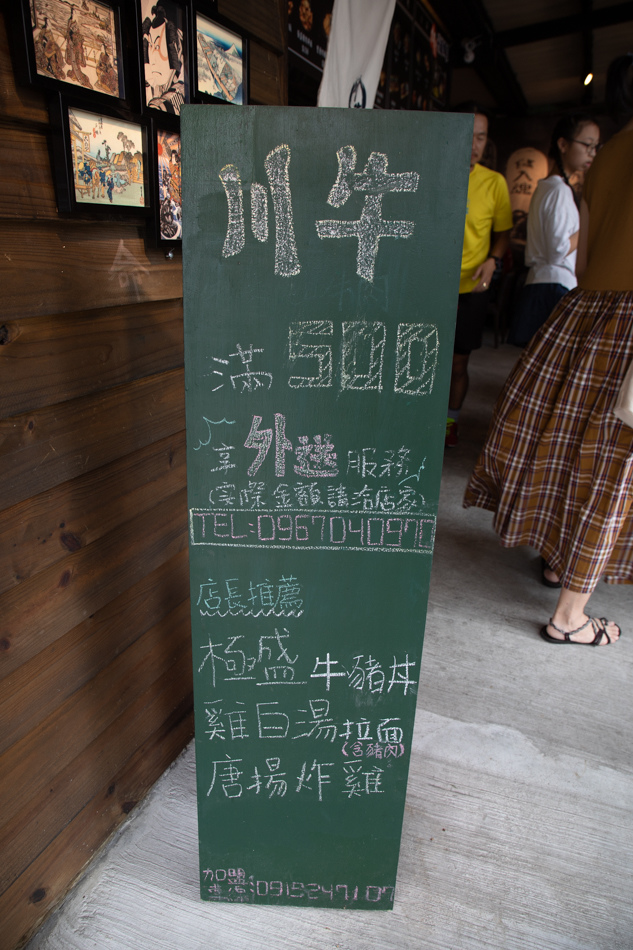 川牛
滿500
享外送服務
(實際金額請洽店家)
TEL:0967040970
店長推薦
極盛牛豬丼
雞白湯拉面
(含豬肉)
唐揚炸雞
加盟
業洽:0915247107